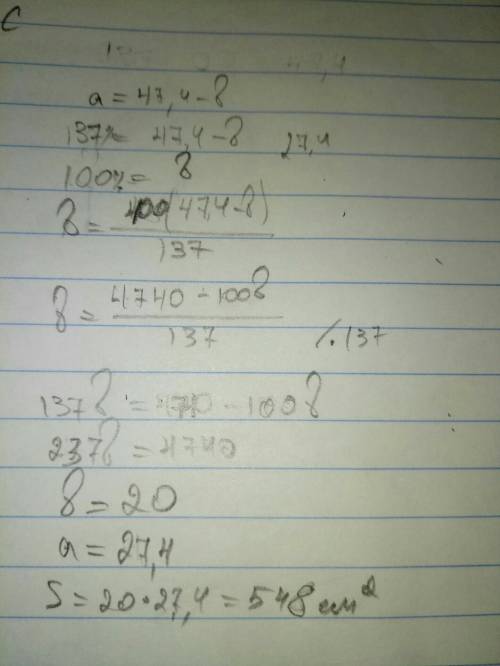 с
a = 47,4 - в
137% = 47,4 - в 27,4
100% = в
в = 100(47,4-в) / 137
в = 4740 - 100в / 137 /.137
137в = 4740 - 100в
237в = 4740
в = 20
a = 27,4
S = 20 • 27,4 = 548 см²